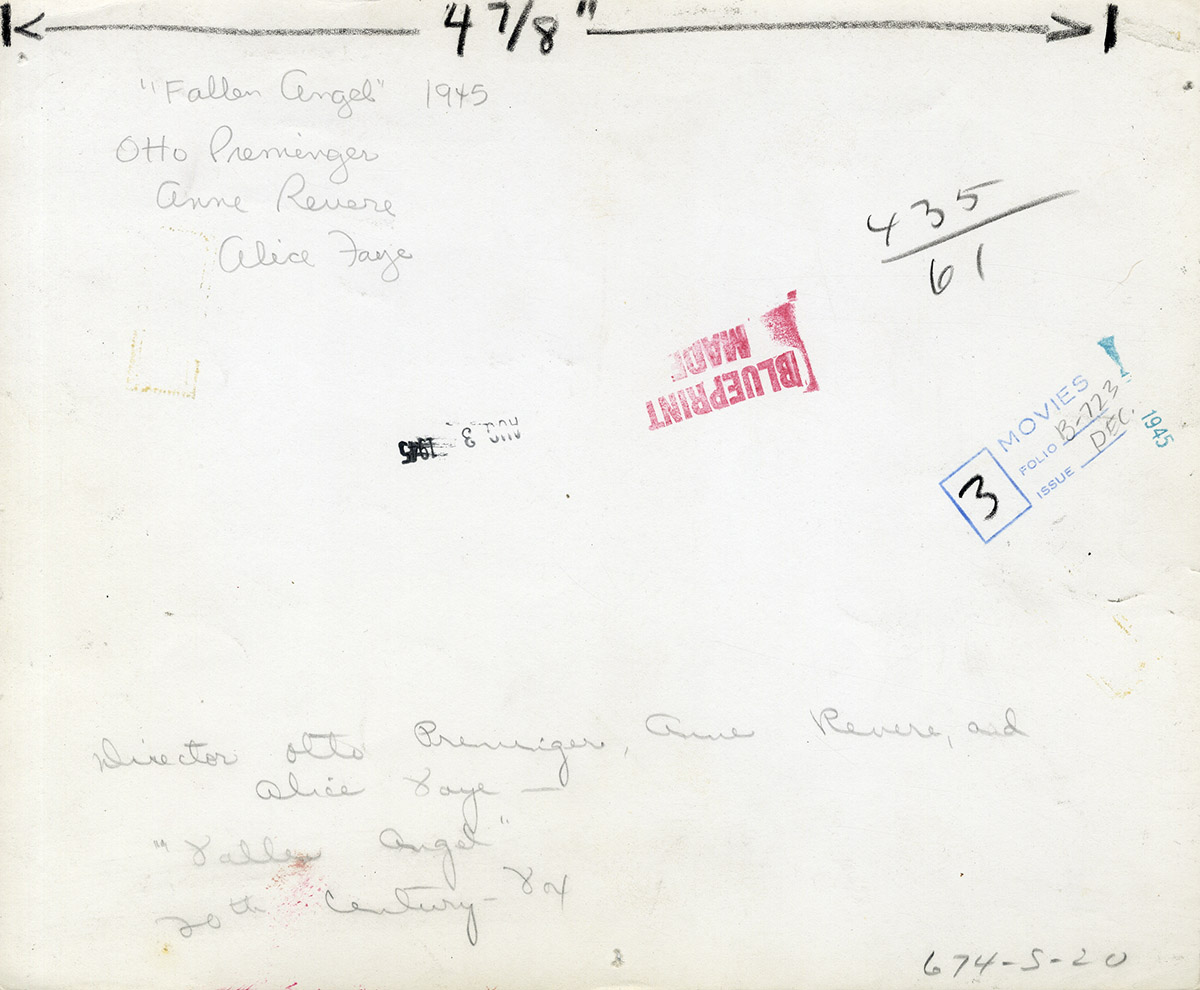 4 7/8"
"Fallen Angel" 1945
Otto Preminger
Anne Revere
Alice Faye
435
61
BLUEPRINT
MADE
AUG 3 1945
3
MOVIES
FOLIO B-723
ISSUE DEC. 1945
Director Otto Premiger, Anne Revere, and
Alice Faye —
"Fallen Angel"
20th Century-Fox
674-S-20